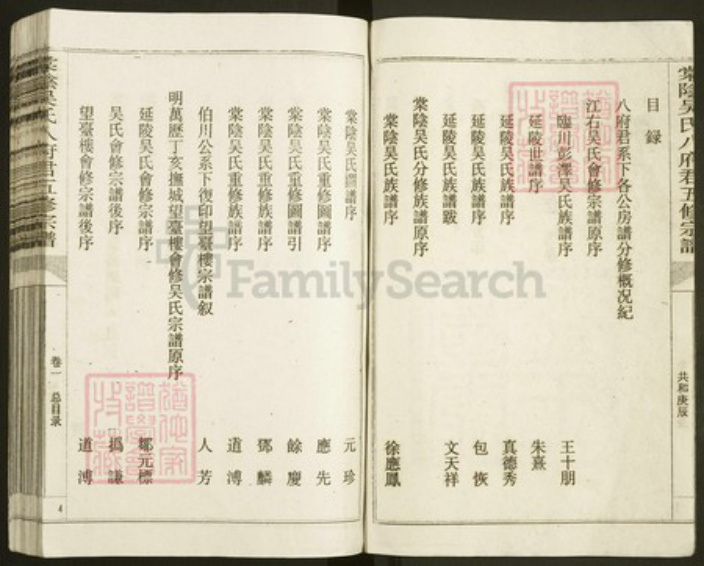 棠陰吴氏八府君五修宗譜
共和庚辰
目錄
八府君系下各公房譜分修概况紀
江右吴氏會修宗譜原序
臨川彭澤吴氏族譜序 王十朋
延陵世譜序 朱熹
延陵吴氏族譜序 真德秀
延陵吴氏族譜序 包恢
延陵吴氏族譜跋 文天祥
棠陰吴氏分修族譜原序
棠陰吴氏族譜序 徐應鳳
棠陰吴氏譜序 元珍
棠陰吴氏重修圖譜序 應先
棠陰吴氏重修圖譜引 餘慶
棠陰吴氏重修族譜序 鄧麟
棠陰吴氏重修族譜序 道溥
伯川公系下復印望臺樓宗譜叙 人芳
明萬歷丁亥撫城望臺樓會修吴氏宗譜原序
延陵吴氏會修宗譜序 鄒元標
吴氏會修宗譜後序 撝謙
望臺樓會修宗譜後序 道溥
棠陰吴氏八府君五修宗譜
卷一 总目录
4
FamilySearch